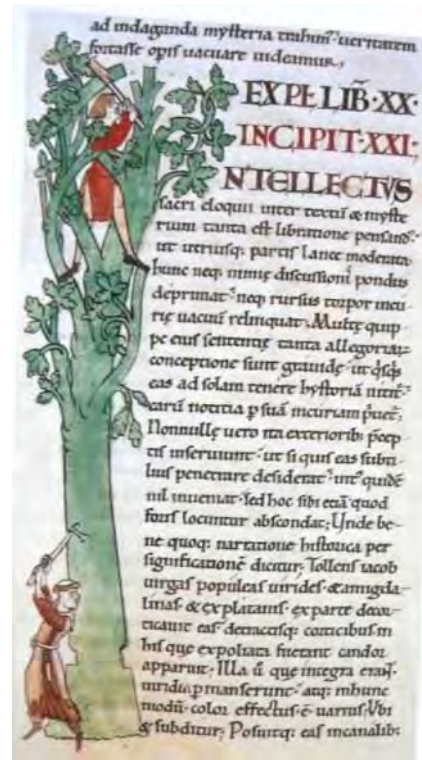 ad indaganda mysteria trahim᷒ ueritatem
fortasse opis uacuare uideamur;
EXPL̅ LIB̅·XX·
INCIPIT·XXI·
NTELLECTVS
sacri eloquii inter textū & myste
rium tanta est libratione pensand᷒·
ut utriusq; partis lance moderata
hunc neq; nimię discussionī pondus
deprimat· neq; rursus torpor incu
rię uacuū relinquat; Multę quip
pe eius sententię tanta allegoriaꝝ
conceptione sunt grauidę· ut q̄sq̄s
eas ad solam tenere hystoriā nitit᷒·
earū notitia p suā incuriam p̄uet᷒;
Nonnullę uero ita exteriorib; p̄cep
tis inseruiunt· ut si quis eas subti
lius penetrare desiderat· int᷒ quidē
nil inueniat· sed hoc sibi etiā quod
foris locuntur abscondat; Unde be
ne quoq; narratione historica per
significationē dicitur; Tollens iacob
uirgas populeas uirides· & amigda
linas· & ex platanis· ex parte decor
ticauit eas· detractisq; corticibus in
his que expoliata fuerant candor
apparuit; Illa ū que integra erant·
uiridia p̄manserunt· atq; in hunc
modū· color effectus·ē· uarius; Vbi
& subditur; Posuitq; eas in canalib;